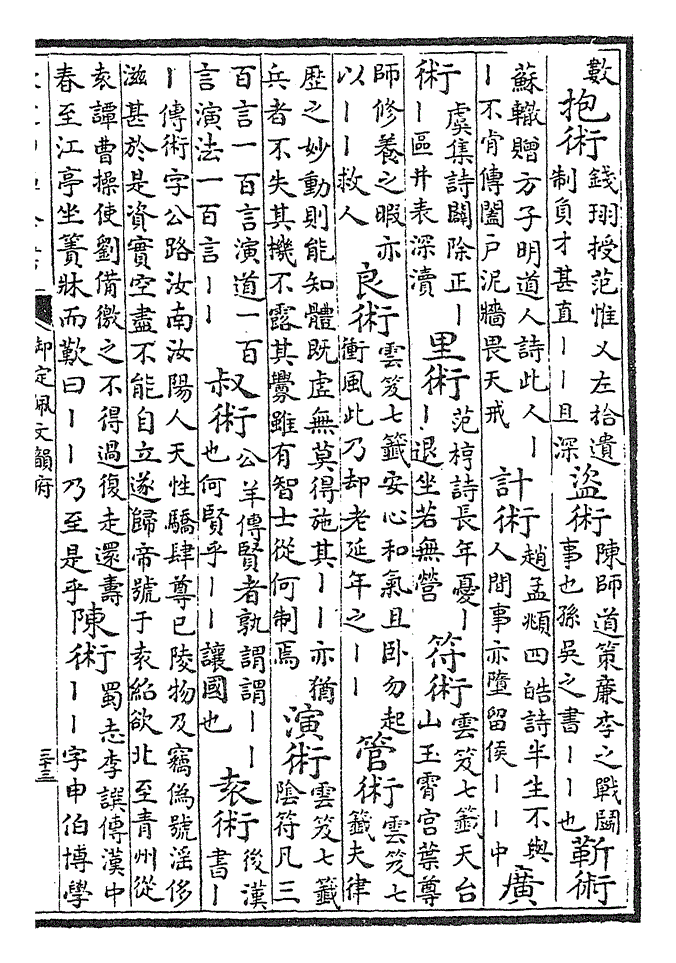 數
抱術
錢珝授范惟乂左拾遺
制負才甚直丨丨且深
盜術
陳師道策亷李之戰鬪
事也孫吳之書丨丨也
靳術
蘇轍贈方子明道人詩此人丨
丨不肯傳闔户泥牆畏天戒
計術
趙孟頫四皓詩半生不與
人間事亦墮留侯丨丨中
廣
術
虞集詩闢除正丨
丨區井表深瀆
里術
范梈詩長年憂丨
丨退坐若無營
符術
雲笈七籤天台
山玉霄宫葉尊
師修養之暇亦
以丨丨救人
良術
雲笈七籤安心和氣且卧勿起
衝風此乃却老延年之丨丨
管術
雲笈七
籤夫律
歴之妙動則能知體既虚無莫得施其丨丨亦猶
兵者不失其機不露其釁雖有智士從何制焉
演術
雲笈七籤
陰符凡三
百言一百言演道一百
言演法一百言丨丨
叔術
公羊傳賢者孰謂謂丨丨
也何賢乎丨丨讓國也
袁術
後漢
書丨
丨傳術字公路汝南汝陽人天性驕肆尊已陵物及竊偽號淫侈
滋甚於是資實空盡不能自立遂歸帝號于袁紹欲北至青州從
袁譚曹操使劉備徼之不得過復走還壽
春至江亭坐簀牀而歎曰丨丨乃至是乎
陳術
蜀志李譔傳漢中
丨丨字申伯博學
御定佩文韻府
三十三